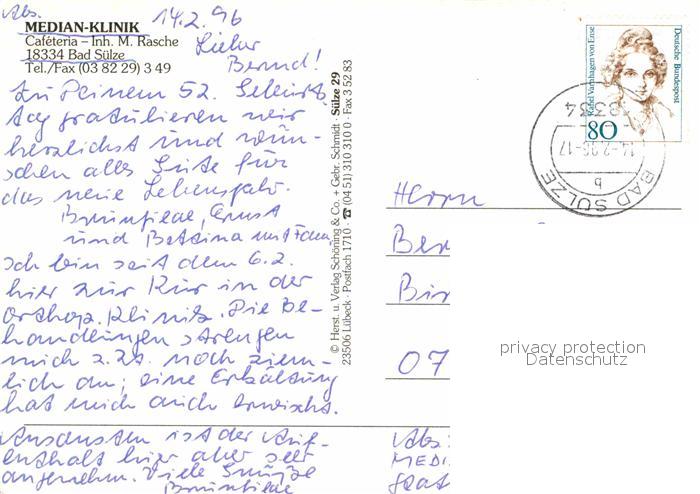 Abs.
MEDIAN-KLINIK
Caféteria – Inh. M. Rasche
18334 Bad Sülze
Tel./Fax (03 82 29) 3 49
14.2.96
Lieber
Bernd!
Zu Deinem 52. Geburts-
tag gratulieren wir
herzlichst und wün-
schen alles Gute für
das neue Lebensjahr.
Brunhilde, Ernst
und Bettina mit Fam.
Ich bin seit dem 6.2.
hier zur Kur in der
Orthop. Klinik. Die Be-
handlungen strengen
mich z.Zt. noch ziem-
lich an; eine Erkältung
hat mich auch erwischt.
Ansonsten ist der Auf-
enthalt hier aber sehr
angenehm. Viele Grüße
Brunhilde
© Herst. u. Verlag Schöning & Co. + Gebr. Schmidt · Sülze 29
23506 Lübeck · Postfach 1710 · ☎ (04 51) 310 310 0 · Fax 3 52 83
Rahel Varnhagen von Ense
Deutsche Bundespost
80
18334
14.-2.96-17
b
BAD SÜLZE
Herrn
Ber
Bir
07
privacy protection
Datenschutz
Abs:
MEDI